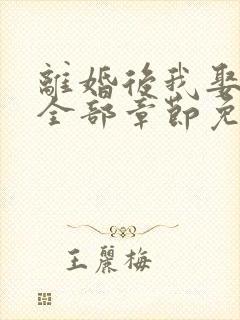 離婚後我娶
全部章節免
王麗梅